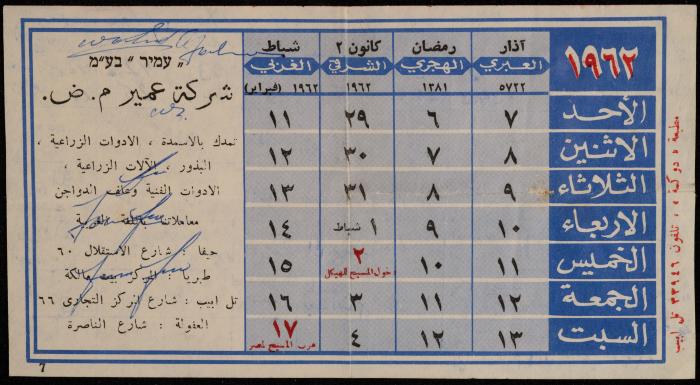 ١٩٦٢
آذار العبري ٥٧٢٢
رمضان الهجري ١٣٨١
كانون ٢ الشرقي ١٩٦٢
شباط الغربي ١٩٦٢ (فبراير)
الأحد ٧ ٦ ٢٩ ١١
الاثنين ٨ ٧ ٣٠ ١٢
الثلاثاء ٩ ٨ ٣١ ١٣
الاربعاء ١٠ ٩ ١ شباط ١٤
الخميس ١١ ١٠ ٢ ١٥
دخول المسيح للهيكل
الجمعة ١٢ ١١ ٣ ١٦
السبت ١٣ ١٢ ٤ ١٧
هرب المسيح لمصر
„ עמיר ” בע״מ
شركة عمير م. ض.
تمدك بالاسمدة ، الادوات الزراعية ،
البذور ، الآلات الزراعية ،
الادوات الفنية وعلف الدواجن
معاملاتنا باللغة العربية
حيفا : شارع الاستقلال ٦٠
طبريا : المركز بيت
تل ابيب : شارع المركز التجاري ٦٦
العفولة : شارع الناصرة
7
مطبعة « دوكمة » ، تلفون ٣٣٩٤٦ تل ابيب